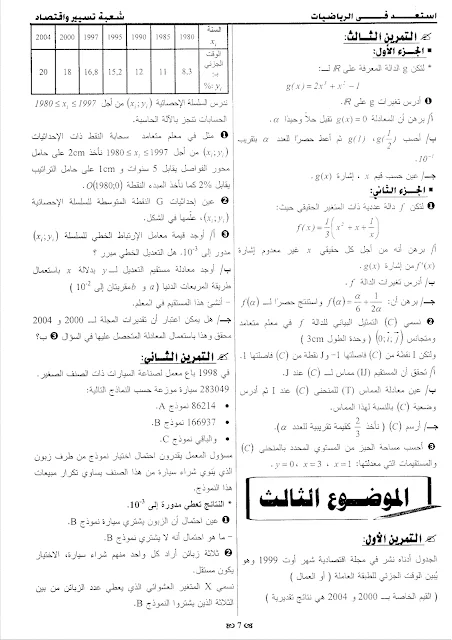 استعد فى الرياضيات
شعبة تسيير واقتصاد
التمرين الثالث:
الجزء الأول:
* لتكن g الدالة المعرفة على IR بـ:
g(x) = 2x³ + x² − 1
❶ أدرس تغيرات g على IR.
أ/ برهن أن المعادلة g(x)=0 تقبل حلا وحيدا α.
ب/ أحسب g(1/2) ، g(1) ثم أعط حصرا للعدد α بتقريب
10⁻¹.
جـ/ عين حسب قيم x ، إشارة g(x).
الجزء الثاني:
❶ لتكن f دالة عددية ذات المتغير الحقيقي حيث:
f(x) = 1/3 (x² + x + 1/x)
أ/ برهن أنه من أجل كل حقيقي x غير معدوم إشارة
f'(x) من إشارة g(x).
ب/ أدرس تغيرات الدالة f.
جـ/ برهن أن: f(α) = α/6 + 1/2α واستنتج حصرا لـ f(α)
❷ نسمي (C) التمثيل البياني للدالة f في معلم متعامد
ومتجانس (0; i, j) (وحدة الطول 3cm)
ولتكن I نقطة من (C) فاصلتها 1- و J نقطة من (C) فاصلتها 1.
أ/ تحقق أن المستقيم (IJ) مماس لـ (C) عند J.
ب/ عين معادلة المماس (T) للمنحنى (C) عند I ثم أدرس
وضعية (C) بالنسبة لهذا المماس.
جـ/ أرسم (C) (نأخذ 2/3 كقيمة تقريبية للعدد α).
❸ أحسب مساحة الحيز من المستوي المحدد بالمنحنى (C)
والمستقيمات التي معدلتها: x=1 ، x=3 ، y=0.
الموضوع الثالث
التمرين الأول:
الجدول أدناه نشر في مجلة اقتصادية شهر أوت 1999 وهو
يُبين الوقت الجزئي للطبقة العاملة (أو العمال)
(القيم الخاصة بـ 2000 و 2004 هي نتائج تقديرية)
السنة xᵢ 1980 1985 1990 1995 1997 2000 2004
الوقت الجزئي yᵢ % 8,3 11 12 15,2 16,8 18 20
ندرس السلسلة الإحصائية (xᵢ; yᵢ) من أجل 1980 ≤ xᵢ ≤ 1997
الحسابات تنجز بالآلة الحاسبة.
❶ مثل في معلم متعامد سحابة النقط ذات الإحداثيات
(xᵢ; yᵢ) من أجل 1980 ≤ xᵢ ≤ 1997 نأخذ 2cm على حامل
محور الفواصل يقابل 5 سنوات و 1cm على حامل التراتيب
يقابل 2% كما نأخذ المبدء النقطة O(1980;0)
❷ عين إحداثيات G النقطة المتوسطة للسلسلة الإحصائية
(xᵢ; yᵢ)، علّمها في الشكل.
❸ أ/ أوجد قيمة معامل الإرتباط الخطي للسلسلة (xᵢ; yᵢ)
مدور إلى 10⁻³. هل التعديل الخطي مبرر ؟
ب/ أوجد معادلة مستقيم التعديل لـ y بدلالة x باستعمال
طريقة المربعات الدنيا (a و b مقربتان إلى 10⁻²)
- أنشئ هذا المستقيم في المعلم.
جـ/ هل يمكن اعتبار أن تقديرات المجلة لـ 2000 و 2004
محقق وهذا باستعمال المعادلة المتحصل عليها في السؤال ❸ ب؟
التمرين الثاني:
في 1998 باع معمل لصناعة السيارات ذات الصنف الصغير.
283049 سيارة موزعة حسب النماذج التالية:
• 86214 نموذج A.
• 166937 نموذج B.
• والباقي نموذج C.
مسؤول المعمل يقدرون احتمال اختيار نموذج من طرف زبون
الذي ينوي شراء سيارة من هذا الصنف يساوي تكرار مبيعات
هذا النموذج.
* النتائج تعطي مدورة إلى 10⁻³.
❶ عين احتمال أن الزبون يشتري سيارة نموذج B.
- ما هو احتمال أنه لا يشتري نموذج B.
❷ ثلاثة زبائن أراد كل واحد منهم شراء سيارة، الاختيار
يكون مستقل.
نسمي X المتغير العشوائي الذي يعطي عدد الزبائن من بين
الثلاثة الذين يشتروا النموذج B.
7